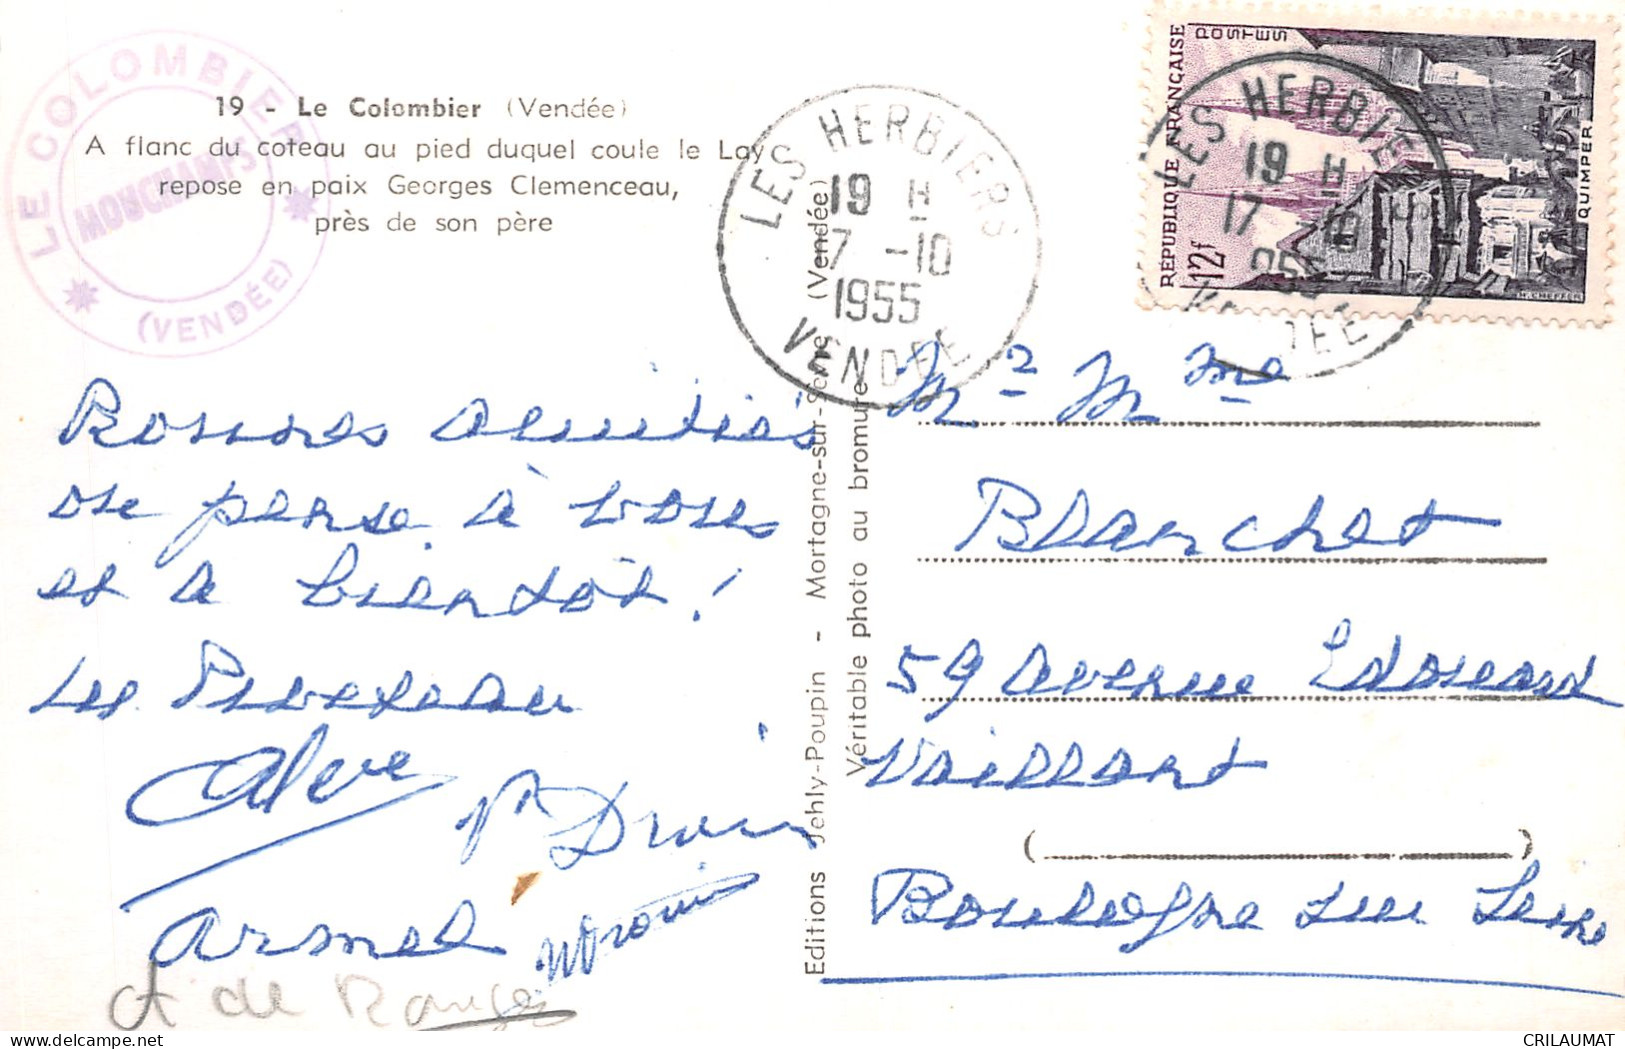 19 - Le Colombier (Vendée)
A flanc du coteau au pied duquel coule le Lay
repose en paix Georges Clemenceau,
près de son père
LE COLOMBIER
MOUCHAMPS
(VENDÉE)
LES HERBIERS
19 H
17 -10
1955
VENDÉE
RÉPUBLIQUE FRANÇAISE
POSTES
12f
QUIMPER
H. CHEFFER
LES HERBIERS
19 H
17
VENDÉE
Bonnes amitiés
on pense à vous
et à bientôt !
Les
Droin
Armel
et de
Editions Jehly-Poupin - Mortagne-sur-Sèvre (Vendée)
Véritable photo au bromure
Mr Mme
Blanchet
59 avenue Edouard
Vaillant
Boulogne sur Seine
CRILAUMAT